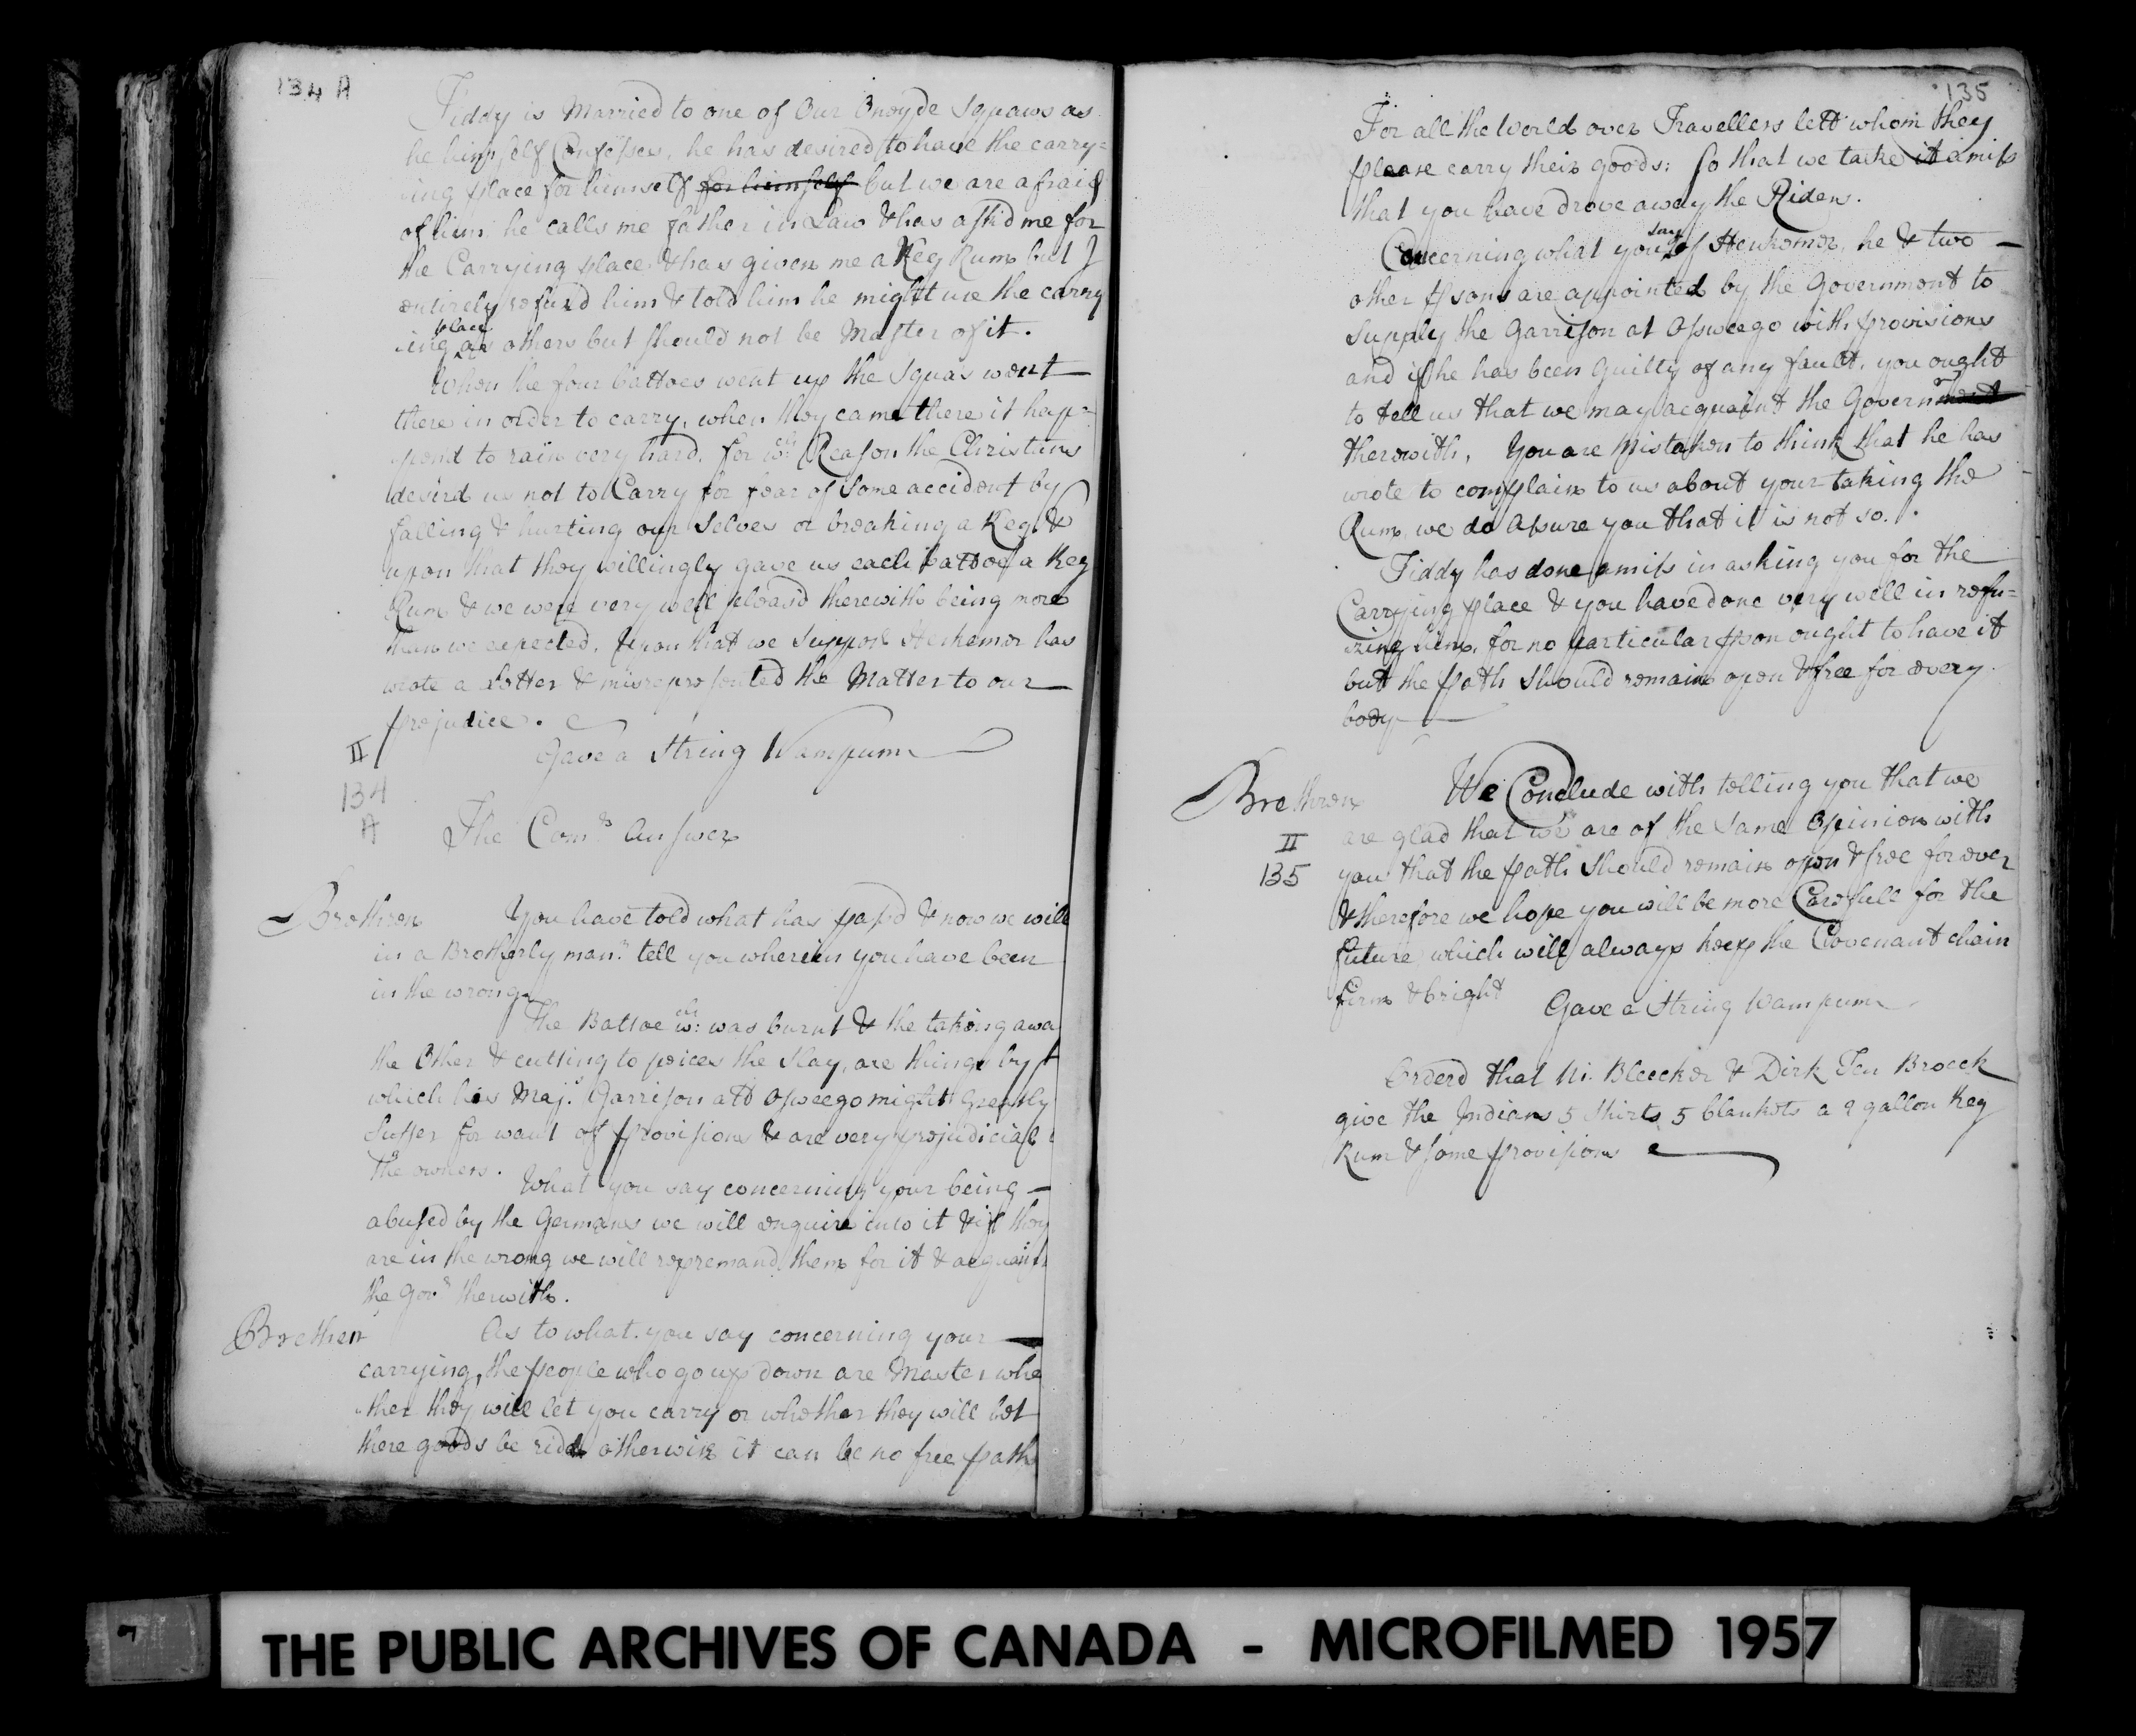 134 A
Tiddy is Married to one of Our Onoyde Squaws as
he himself Confesses, he has desired to have the carry=
ing place for himself for himself but we are afraid
of him, he calls me father in Law & has askd me for
the Carrying place & has given me a Keg Rum but I
entirely refused him & told him he might use the carry
ing place as others but should not be Master of it.
When the four battoes went up the Squas went
there in order to carry, when they came there it hap=
pend to rain very hard, for wch Reason the Christians
desird us not to Carry for fear of some accident by
falling & hurting our Selves or breaking a Keg, &
upon that they willingly gave us each battoe a Keg
Rum & we were very well pleasd therewith being more
than we expected, Upon that we Suppose Herkemer has
wrote a Letter & misrepresented the Matter to our
prejudice.
Gave a String Wampum
II
134
A
The Comrs Answer
Brethren You have told what has passd & now we will
in a Brotherly manr tell you wherein you have been
in the wrong
The Battoe wch: was burnt & the taking awa
the Other & cutting to peices the Slay, are things by
which his Maj:s Garrison att Osweego might Greatly
Suffer for want of provisions & are very prejudicial
the owners.
What you say concerning your being
abused by the Germans we will enquire into it & if they
are in the wrong we will repremand them for it & acquaint
the Govr therwith.
Brethren As to what you say concerning your
carrying, the people who go up down are Master whe
ther they will let you carry or whether they will let
there goods be ridd otherwise it can be no free path
135
For all the World over Travellers lett whom they
please carry their goods: so that we take it amiss
that you have drove away the Riders.
Concerning what you say of Herkemer, he & two
other psons are appointed by the Government to
Supply the Garrison at Osweego with provisions
and if he has been Guilty of any fault, you ought
to tell us that we may acquaint the Governr
therewith, You are Mistaken to think that he has
wrote to complain to us about your taking the
Rum, we do Assure you that it is not so.
Tiddy has done amiss in asking you for the
Carrying place & you have done very well in refu=
zing him, for no particular pson ought to have it
but the path Should remain open & free for every
body
Brethren We Conclude with telling you that we
are glad that we are of the same Opinion with
II
135
you that the path Should remain open & free for ever
& therefore we hope you will be more Carefull for the
future which will always keep the Covenant chain
firm & bright Gave a String Wampum
Orderd that Ni. Bleecker & Dirk Ten Broeck
give the Indians 5 Shirts 5 blankets a 2 gallon Keg
Rum & some provisions
THE PUBLIC ARCHIVES OF CANADA - MICROFILMED 1957